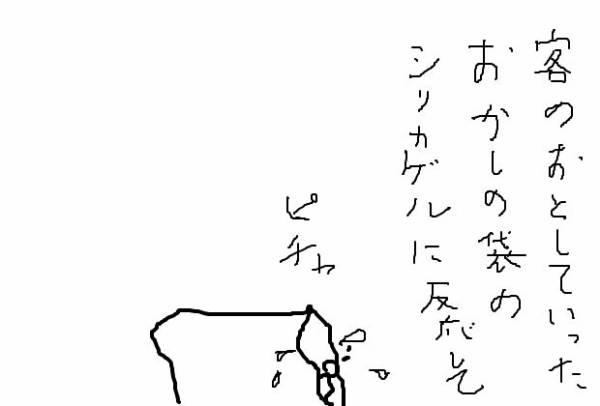 客のおとしていった
おかしの袋の
シリカゲルに反応して
ピチャ